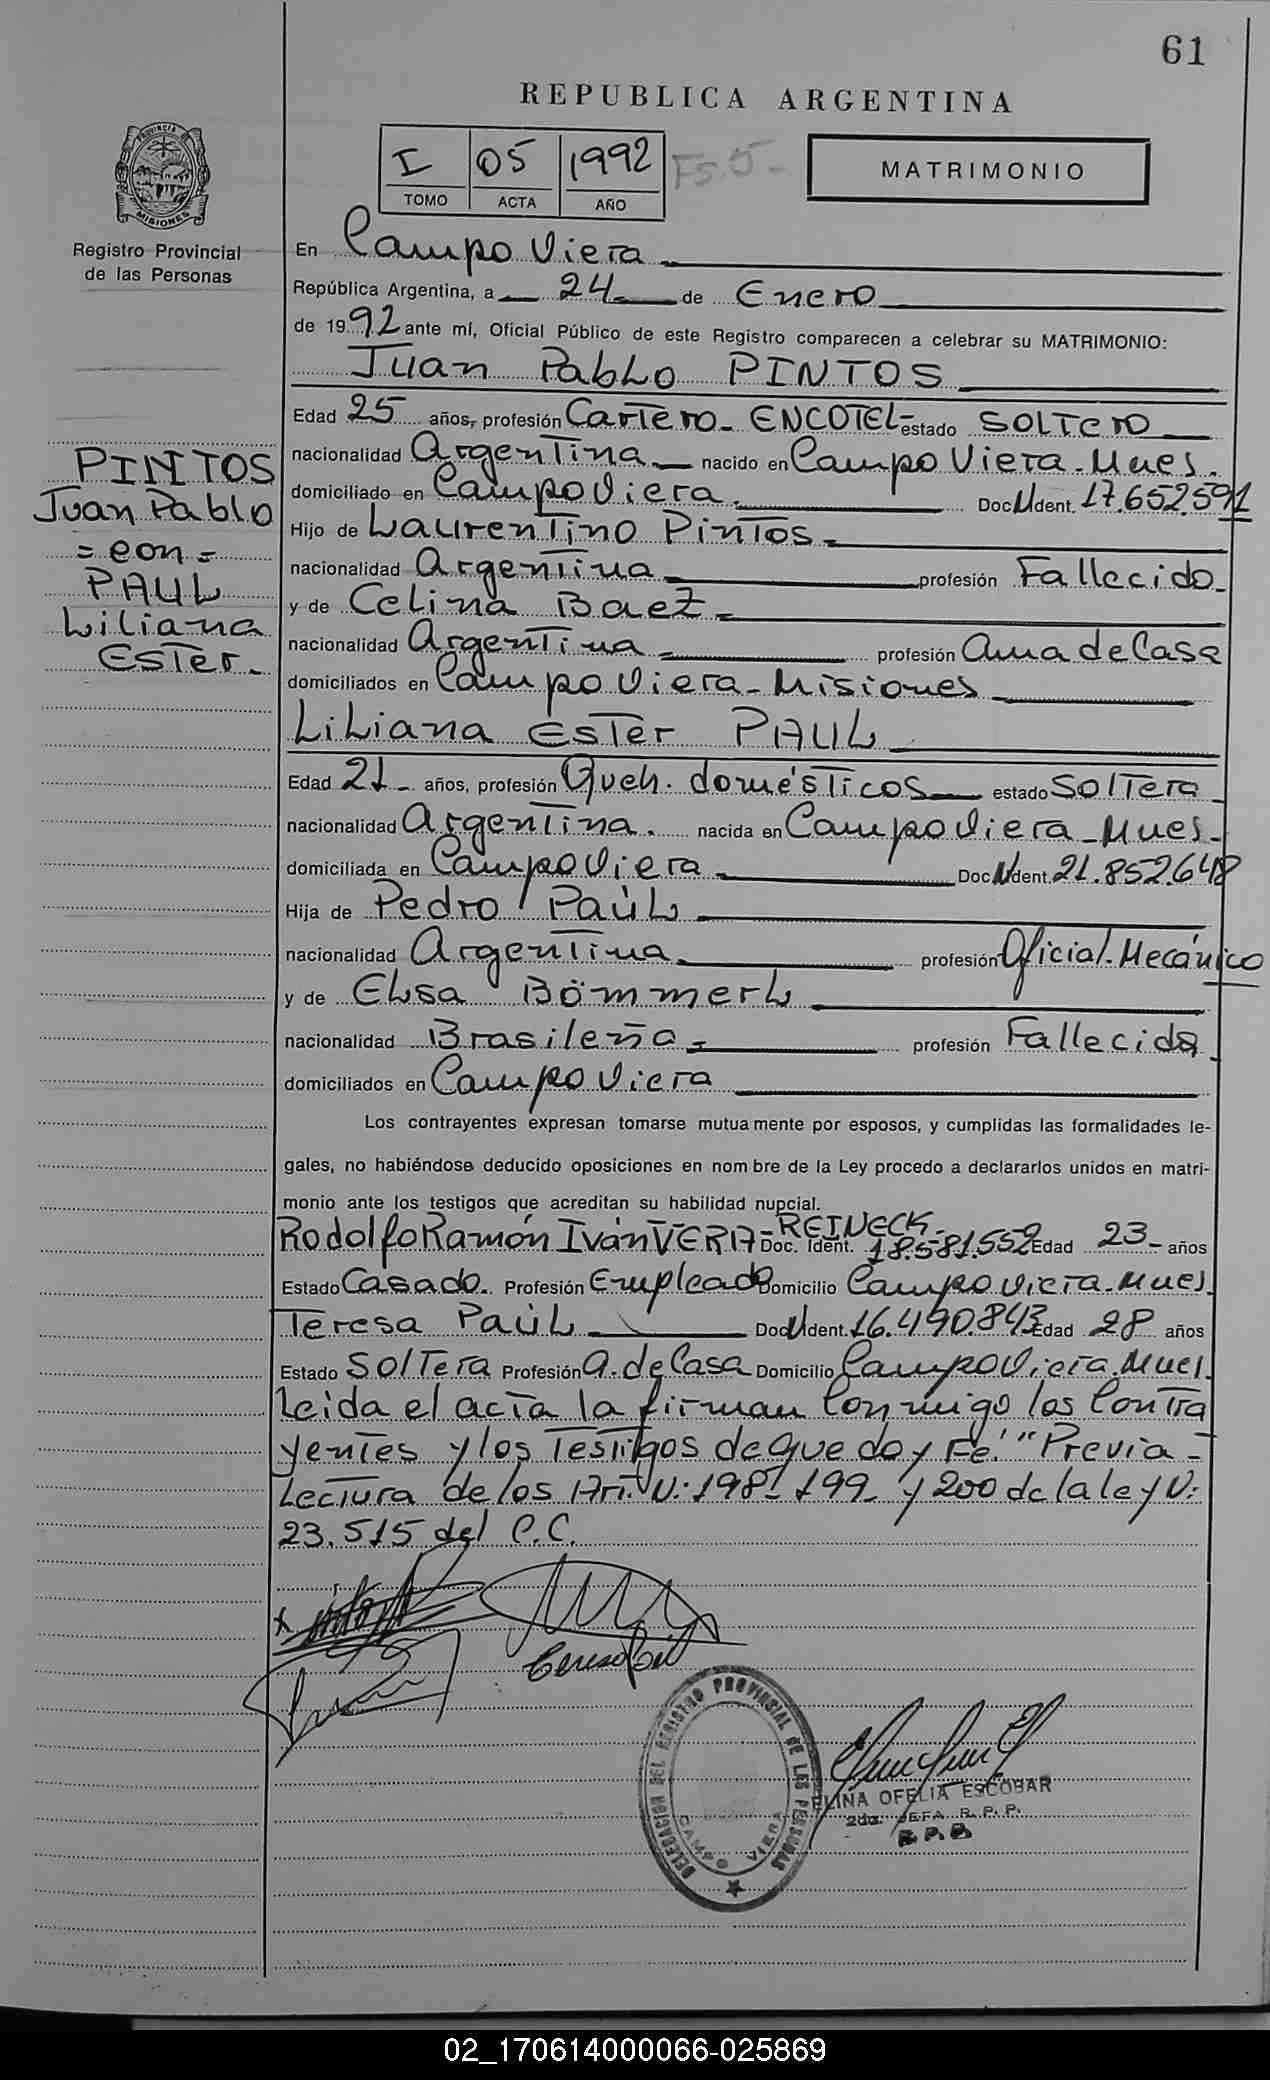 61
REPUBLICA ARGENTINA
I 05 1992 Fs. 5-
TOMO ACTA AÑO
MATRIMONIO
PROVINCIA DE MISIONES
Registro Provincial
de las Personas
En Campo Viera
República Argentina, a 24 de Enero
de 1992 ante mí, Oficial Público de este Registro comparecen a celebrar su MATRIMONIO:
Juan Pablo PINTOS
Edad 25 años, profesión Cartero - ENCOTEL - estado SOLTERO
nacionalidad Argentina nacido en Campo Viera - Mnes.
domiciliado en Campo Viera. Doc. N. Ident. 17.652.591
Hijo de Laurentino Pintos -
nacionalidad Argentina profesión Fallecido -
y de Celina Baez -
nacionalidad Argentina - profesión Ama de Casa
domiciliados en Campo Viera - Misiones
PINTOS
Juan Pablo
= con =
PAUL
Liliana
Ester. -
Liliana Ester PAUL
Edad 21 - años, profesión Queh. domésticos estado Soltera -
nacionalidad Argentina. nacida en Campo Viera - Mnes -
domiciliada en Campo Viera - Doc. N. Ident. 21.852.648
Hija de Pedro Paúl
nacionalidad Argentina. profesión Oficial. Mecánico
y de Elsa Bömmerl
nacionalidad Brasileña - profesión Fallecida -
domiciliados en Campo Viera
Los contrayentes expresan tomarse mutuamente por esposos, y cumplidas las formalidades le-
gales, no habiéndose deducido oposiciones en nombre de la Ley procedo a declararlos unidos en matri-
monio ante los testigos que acreditan su habilidad nupcial.
Rodolfo Ramón Iván VERA - REINECK - Doc. Ident. 18.581.552 Edad 23 - años
Estado Casado. Profesión Empleado Domicilio Campo Viera - Mnes.
Teresa Paúl Doc. N. Ident. 16.490.843 Edad 28 años
Estado Soltera Profesión A. de Casa Domicilio Campo Viera. Mnes.
Leida el acta la firman Conmigo los Contra
yentes y los Testigos de que doy Fé. "Previa -
Lectura de los Art. N: 198 - 199 - y 200 de la ley N:
23.515 del C.C.
x
Teresa Paúl
DELEGACION DEL REGISTRO PROVINCIAL DE LAS PERSONAS
CAMPO VIERA
ELINA OFELIA ESCOBAR
2da. JEFA R. P. P.
02_170614000066-025869